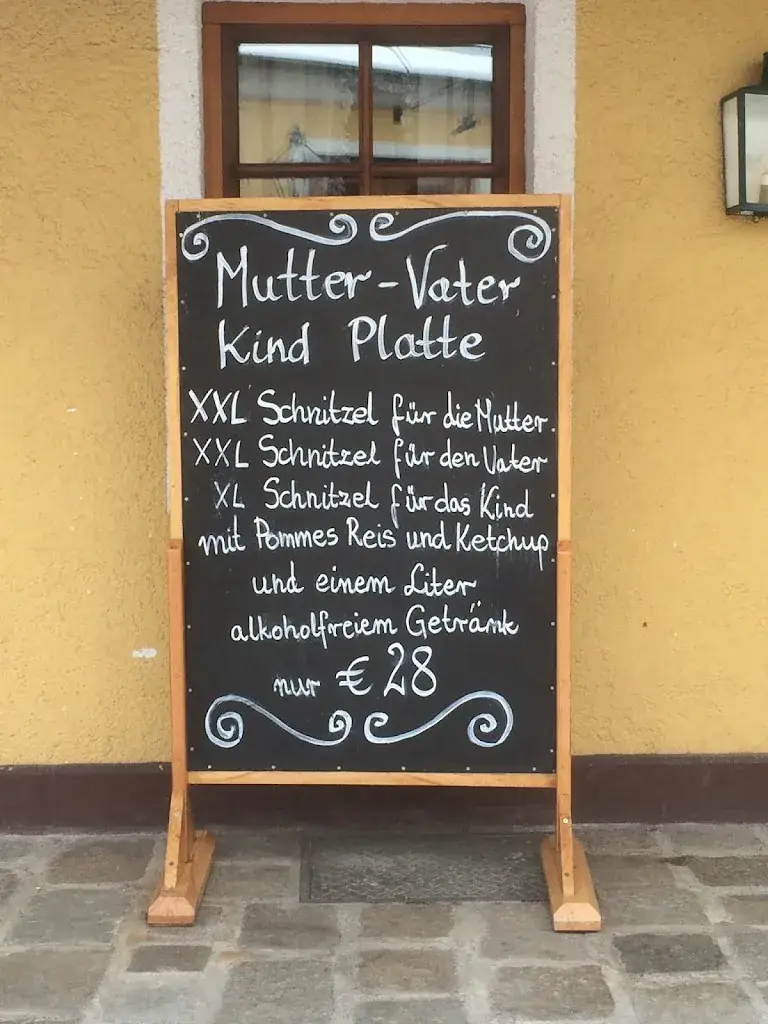 Mutter-Vater
Kind Platte
XXL Schnitzel für die Mutter
XXL Schnitzel für den Vater
XL Schnitzel für das Kind
mit Pommes Reis und Ketchup
und einem Liter
alkoholfreiem Getränk
nur € 28